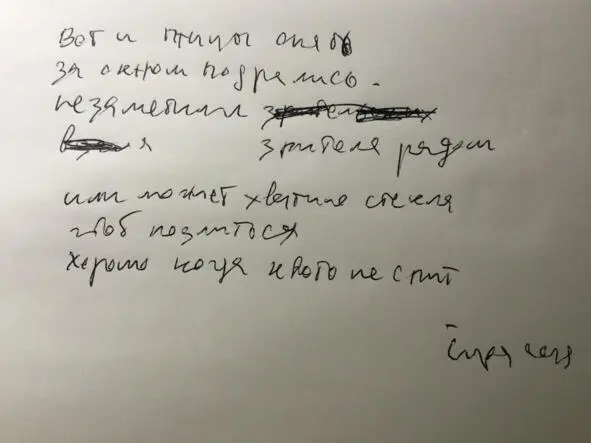 Вот и птицы опять
за окном подрались.
незаметили
я зрителя рядом
или может хватило стекла
чтоб позлиться
Хорошо когда никого не спит